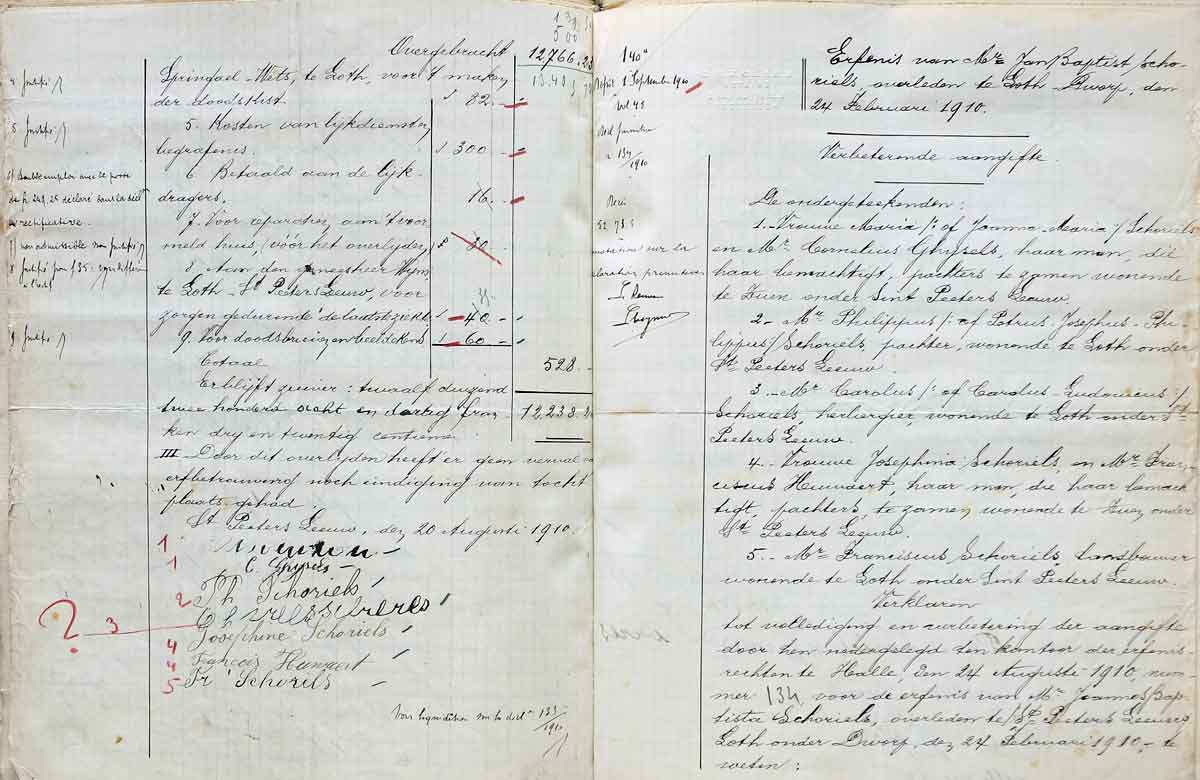 Overgebracht 12766,23
Springael-Mets, te Loth, voor 't maken
der doodskist. 82 -
5. Kosten van lijkdienst en
begrafenis. 300 -
6. Betaald aan de lijk-
dragers. 16 -
7. Voor reparatien aan t voor
meld huis, (vóór het overlijden) 30 -
8. Aan den geneesheer
te Loth - St Peeters Leeuw, voor 35.
zorgen gedurende de laatste ziekte 40 -
9. Voor doodsbrieven en beeldekens 60 -
Totaal 528 -
Er blijft zuiver: twaalf duizend
twee honderd acht en dertig fran- 12,238.
ken dry en twentig centiemen.
III Door dit overlijden heeft er geen verval van
erfbetrouwing noch eindiging van tocht
plaats gehad
St Peeters Leeuw, den 20 Augusti 1910.
4 justifié
5 justifié
7 non admissible non justifié
8 justifié pour f 35
9 justifié
1
1 C. Ghysels
2 Ph Schoriels
? 3
4 Josephine Schoriels
4 François Hauwaert
5 Fr Schoriels
Voir liquidation sur la décl on 133/1910
140a
Déposé 1 Septembre 1910
vol 43
Décl. primitive
n 134/1910
Reçu
52 78.5
Erfenis van Mr Jan Baptist Scho-
riels, overleden te Loth-Dworp, den
24 Februari 1910.
Verbeterende aangifte.
De ondergeteekenden:
1. - Vrouwe Maria /: of Joanna-Maria/ Schoriels
en Mr Cornelius Ghysels, haar man, die
haar bemachtigt, pachters te zamen wonende
te Zuen onder Sint Peeters Leeuw.
2 - Mr Philippus /: of Petrus-Josephus-Phi-
lippus/ Schoriels, pachter, wonende te Loth onder
St Peeters Leeuw.
3. - Mr Carolus /: of Carolus-Ludovicus :/
Schoriels, herbergier, wonende te Loth onder St
Peeters Leeuw.
4. - Vrouwe Josephina Schoriels, en Mr Fran-
ciscus Hauwaert, haar man, die haar bemach-
tigt, pachters, te zamen wonende te Zuen onder
St Peeters Leeuw.
5. - Mr Franciscus Schoriels, landbouwer
wonende te Loth onder Sint Peeters Leeuw.
Verklaren
tot vollediging en verbetering der aangifte
door hen nedergelegd ten kantoor der erfenis-
rechten te Halle, den 24 Augusti 1910, num-
mer 134 voor de erfenis van Mr Joannes Bap-
tista Schoriels, overleden te St Peeters Leeuw
Loth onder Dworp, den 24 Februari 1910, - te
weten: